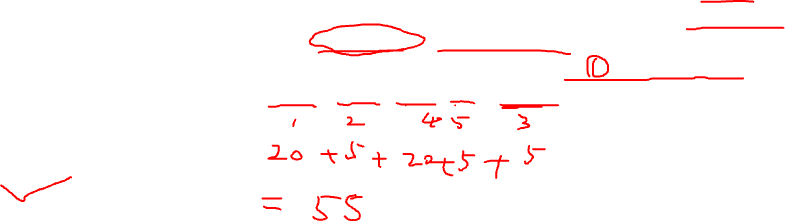 ①
1 2 4 5 3
20 + 5 + 20 + 5 + 5
= 55